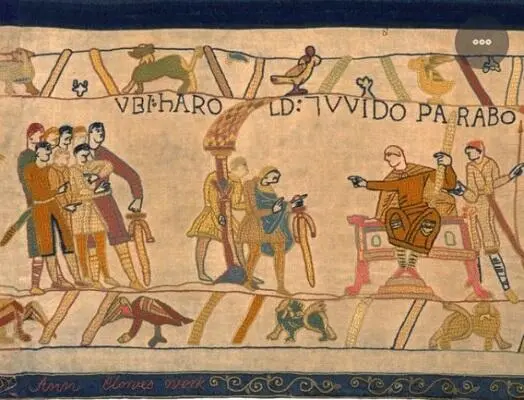 VBI·HARO LD:⁊VVIDO PARABO
Ann Clowes work